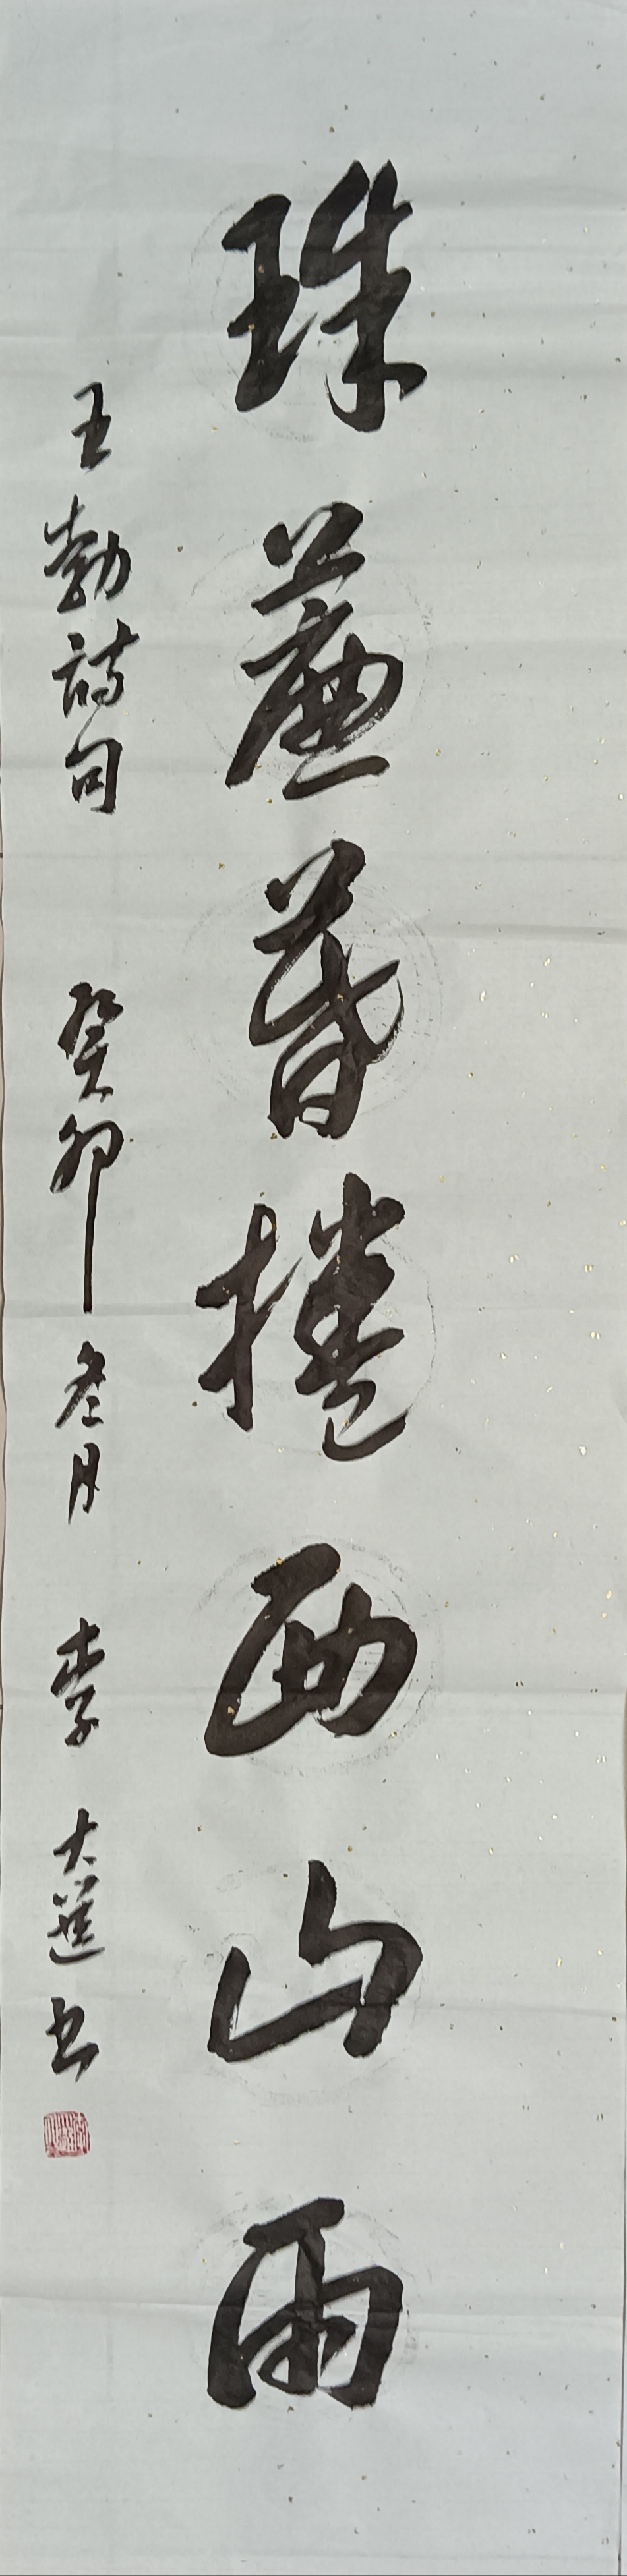 珠簾暮捲西山雨
王勃詩句 癸卯叁月 李大書